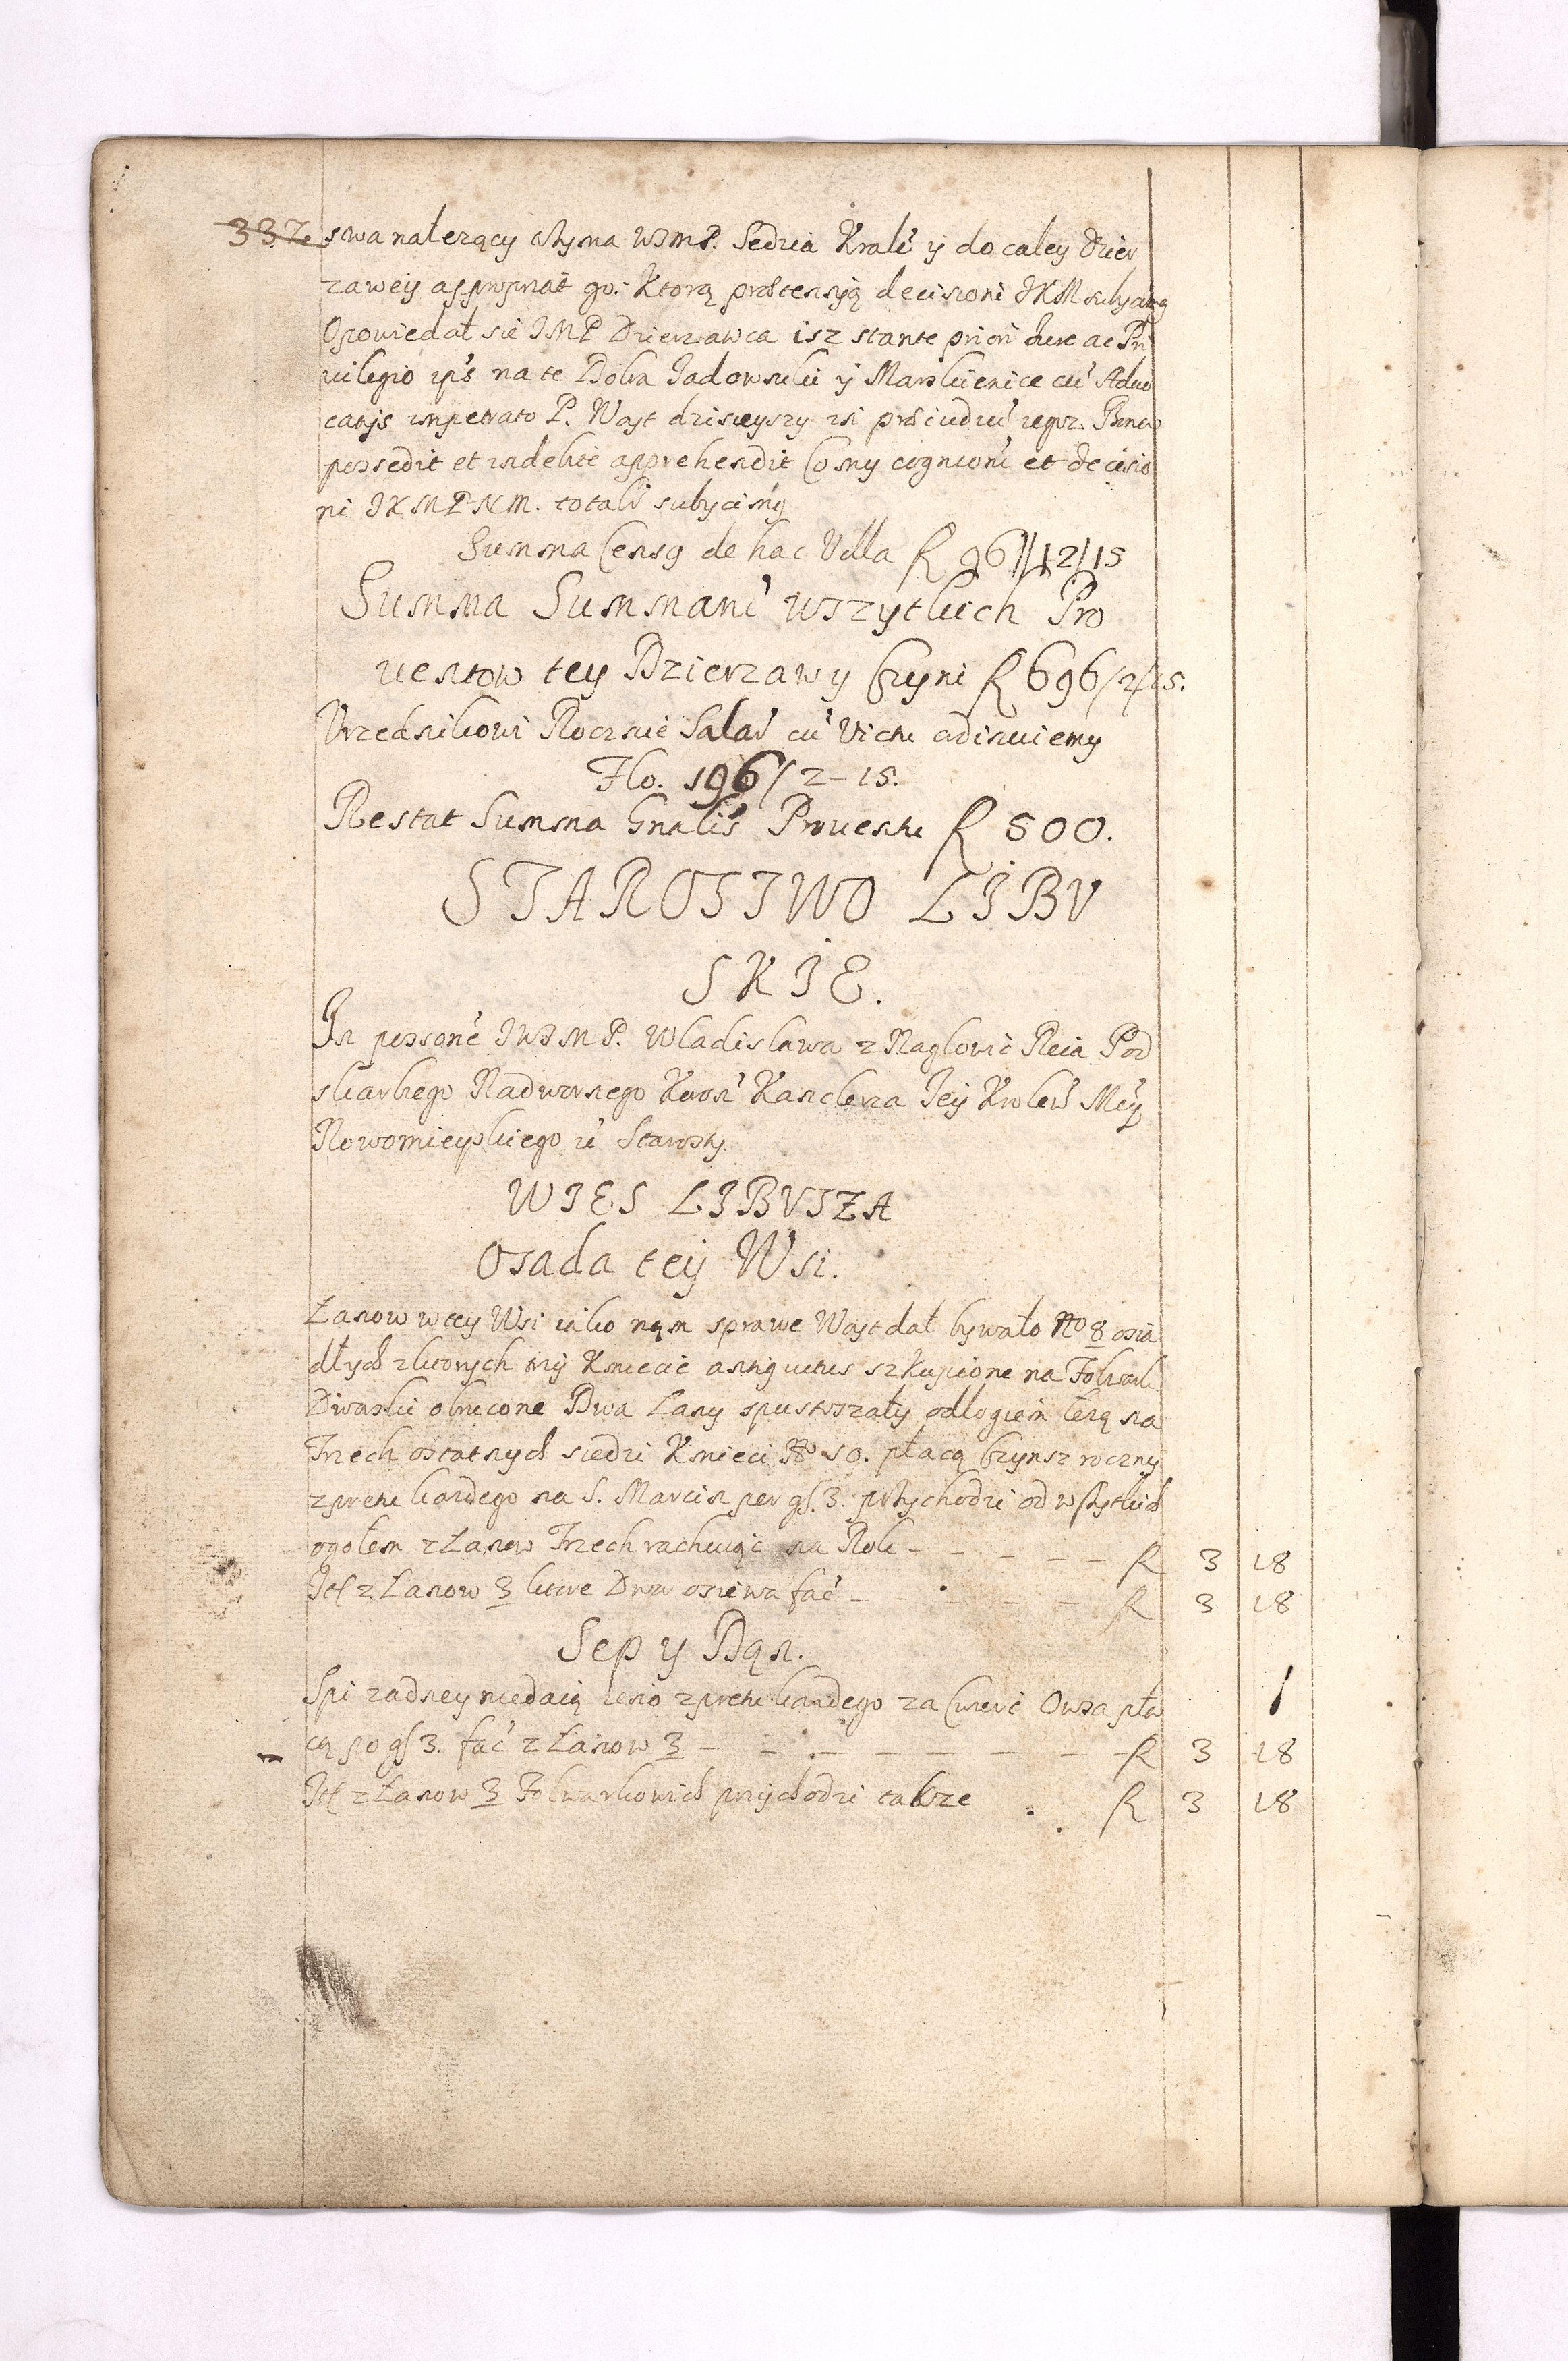 337. swa należący Wyna WJMP. Sedzia Krali y do całey dzier
zawey appropriat go: Ktorą praetensyą decisioni JKM subycimg
Opowiedał sie JMP Dzierzawca isz stante priori Jure ac Pri
uilegio ips na te Dobra Jadowniki y Maszkienice cu Aduo
catys impetrato P. Woyt dzisieyszy in praeiudiu
possedit et indebite apprehendit Co my cognioni et decisio
ni JKMPNM. totali subycimy
Summa Censg de hac Villa R 96//12/15
Summa Summani wszytkich Pro
uentow tey Dzierzawy Czyni R 696/2/15.
Vrzednikowi Rocznie Salar cu Victu adinuiemy
Flo. 196/2-15.
Restat Summa Gnalis Prouentu R 500.
STAROSTWO LIBU
SKIE.
In persone JWJMP. Wladislawa z Naglowic Reia Pod
skarbiego Nadwornego Koron Kanclerza Jey Krolew Mcy
Nowomieyskiego Starosty.
WIES LIBUSZA
Osada tey Wsi.
Łanow w tey Wsi iako nąm sprawe Woyt dał bywało No 8 osia
dłych z ktorych trzy Kmiecie antiquitus szkupione na Folwark
Dworski obrucone Dwa Łany spustoszały odlogiem lezą na
Trzech ostatnych siedzi Kmieci No 10. płacą Czynsz roczny
z pręta kazdego na S. Marcin per gs. 3. przychodzi od wszytkich
ogołem z Łanow Trzech rachuiąc na Rok - - - - - R 3 18
Jt z Łanow 3 ktore Dwor osiewa fac - - - - - R 3 18
Sep y Dąn.
Spi zadney niedaią ieno z pręta kazdego za Cwierc Owsa pła
cą po gs 3. fac z Łanow 3 - - - - - - - - R 3 18
Jt z Łanow 3 Folwarkowich przychodzi takze R 3 18